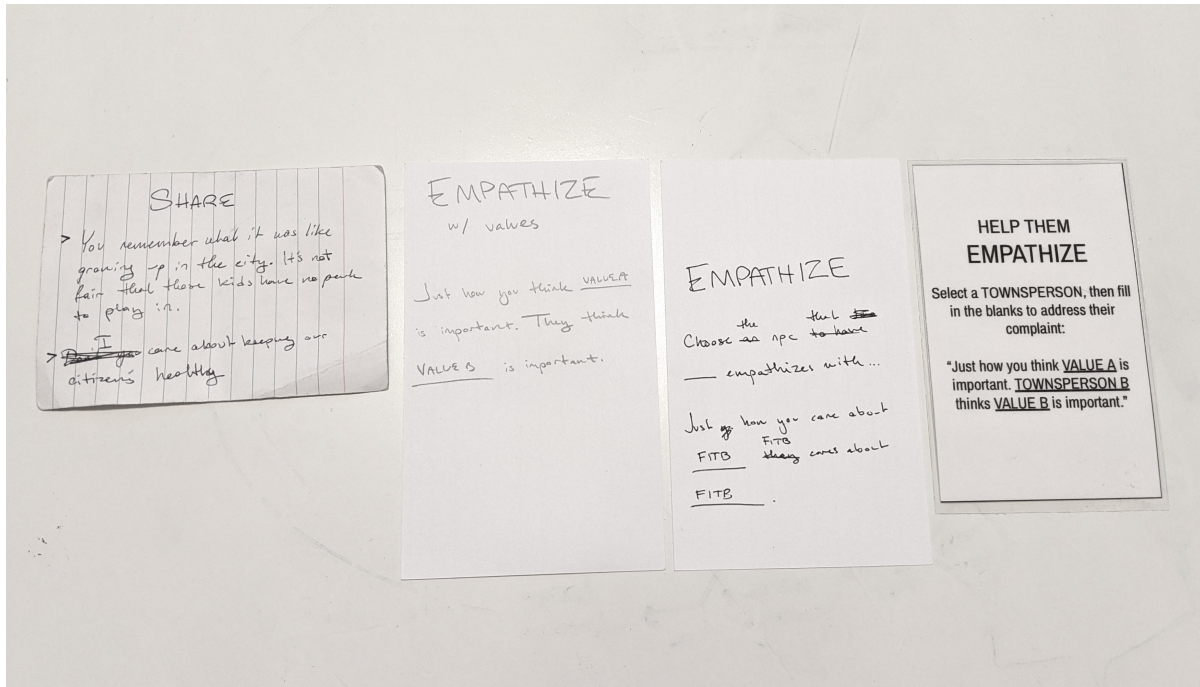 SHARE
> You remember what it was like
growing up in the city. It's not
fair that these kids have no park
to play in.
I
> care about keeping our
citizens healthy
EMPATHIZE
w/ values
Just how you think VALUE A
is important. They think
VALUE B is important.
EMPATHIZE
the that
Choose an npc to have
___ empathizes with...
Just how you care about
FITB
FITB they cares about
FITB.
HELP THEM
EMPATHIZE
Select a TOWNSPERSON, then fill
in the blanks to address their
complaint:
“Just how you think VALUE A is
important. TOWNSPERSON B
thinks VALUE B is important.”